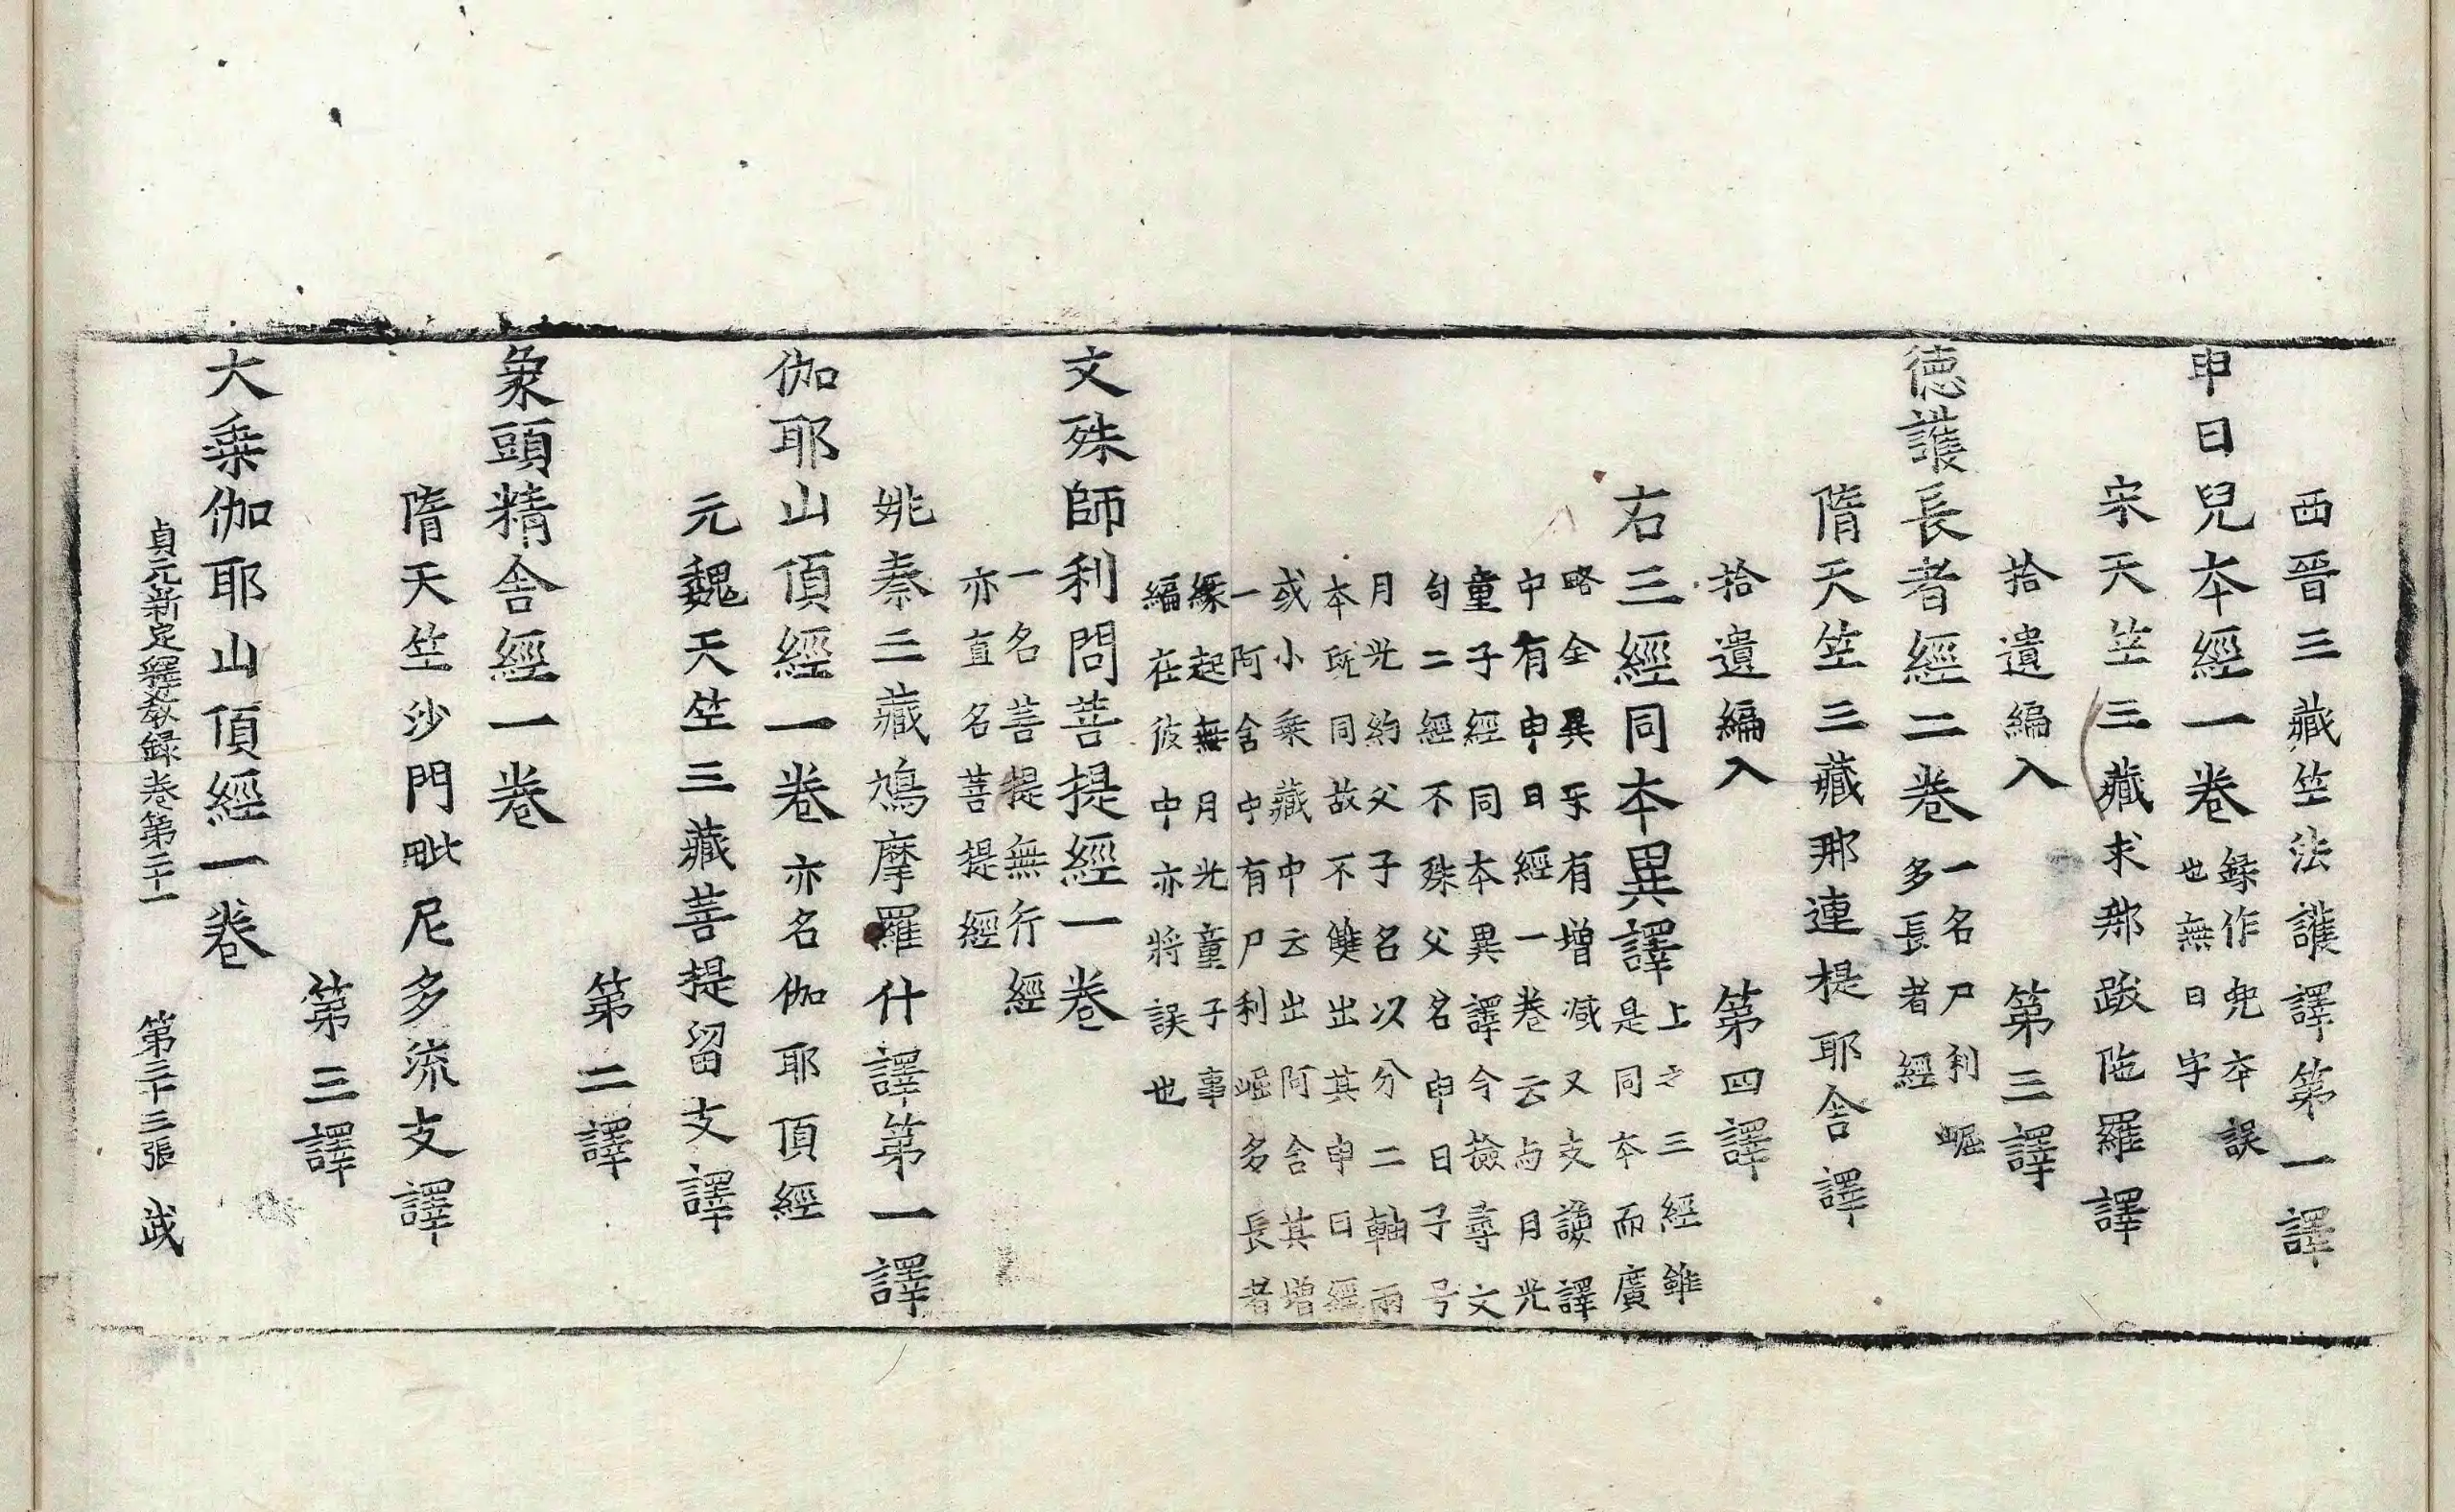 西晉三藏竺法護譯第一譯
申日兒本經一卷
録作兜本誤
也無日字
宋天竺三藏求那跋陁羅譯
拾遺編入 第三譯
徳護長者經二卷
一名尸利崛
多長者經
隋天竺三藏那連提耶舍譯
拾遺編入 第四譯
右三經同本異譯
上之三經雖
是同本而廣
略全異乐有增减又支謙譯
中有申日經一卷云与月光
童子經同本異譯今撿尋文
句二經不殊父名申日子号
月光約父子名以分二軸兩
本旣同故不雙出其申日經
或小乗藏中云出阿含其增
一阿含中有尸利崛名長者
縁起無月光童子事
編在彼中亦將誤也
文殊師利問菩提經一卷
一名菩提無行經
亦直名菩提經
姚秦三藏鳩摩羅什譯第一譯
伽耶山頂經一卷亦名伽耶頂經
元魏天竺三藏菩提留支譯
第二譯
象頭精舍經一卷
隋天竺沙門毗尼多流支譯
第三譯
大乗伽耶山頂經一卷
貞元新定釋教録卷第二十一 第三十三張 武